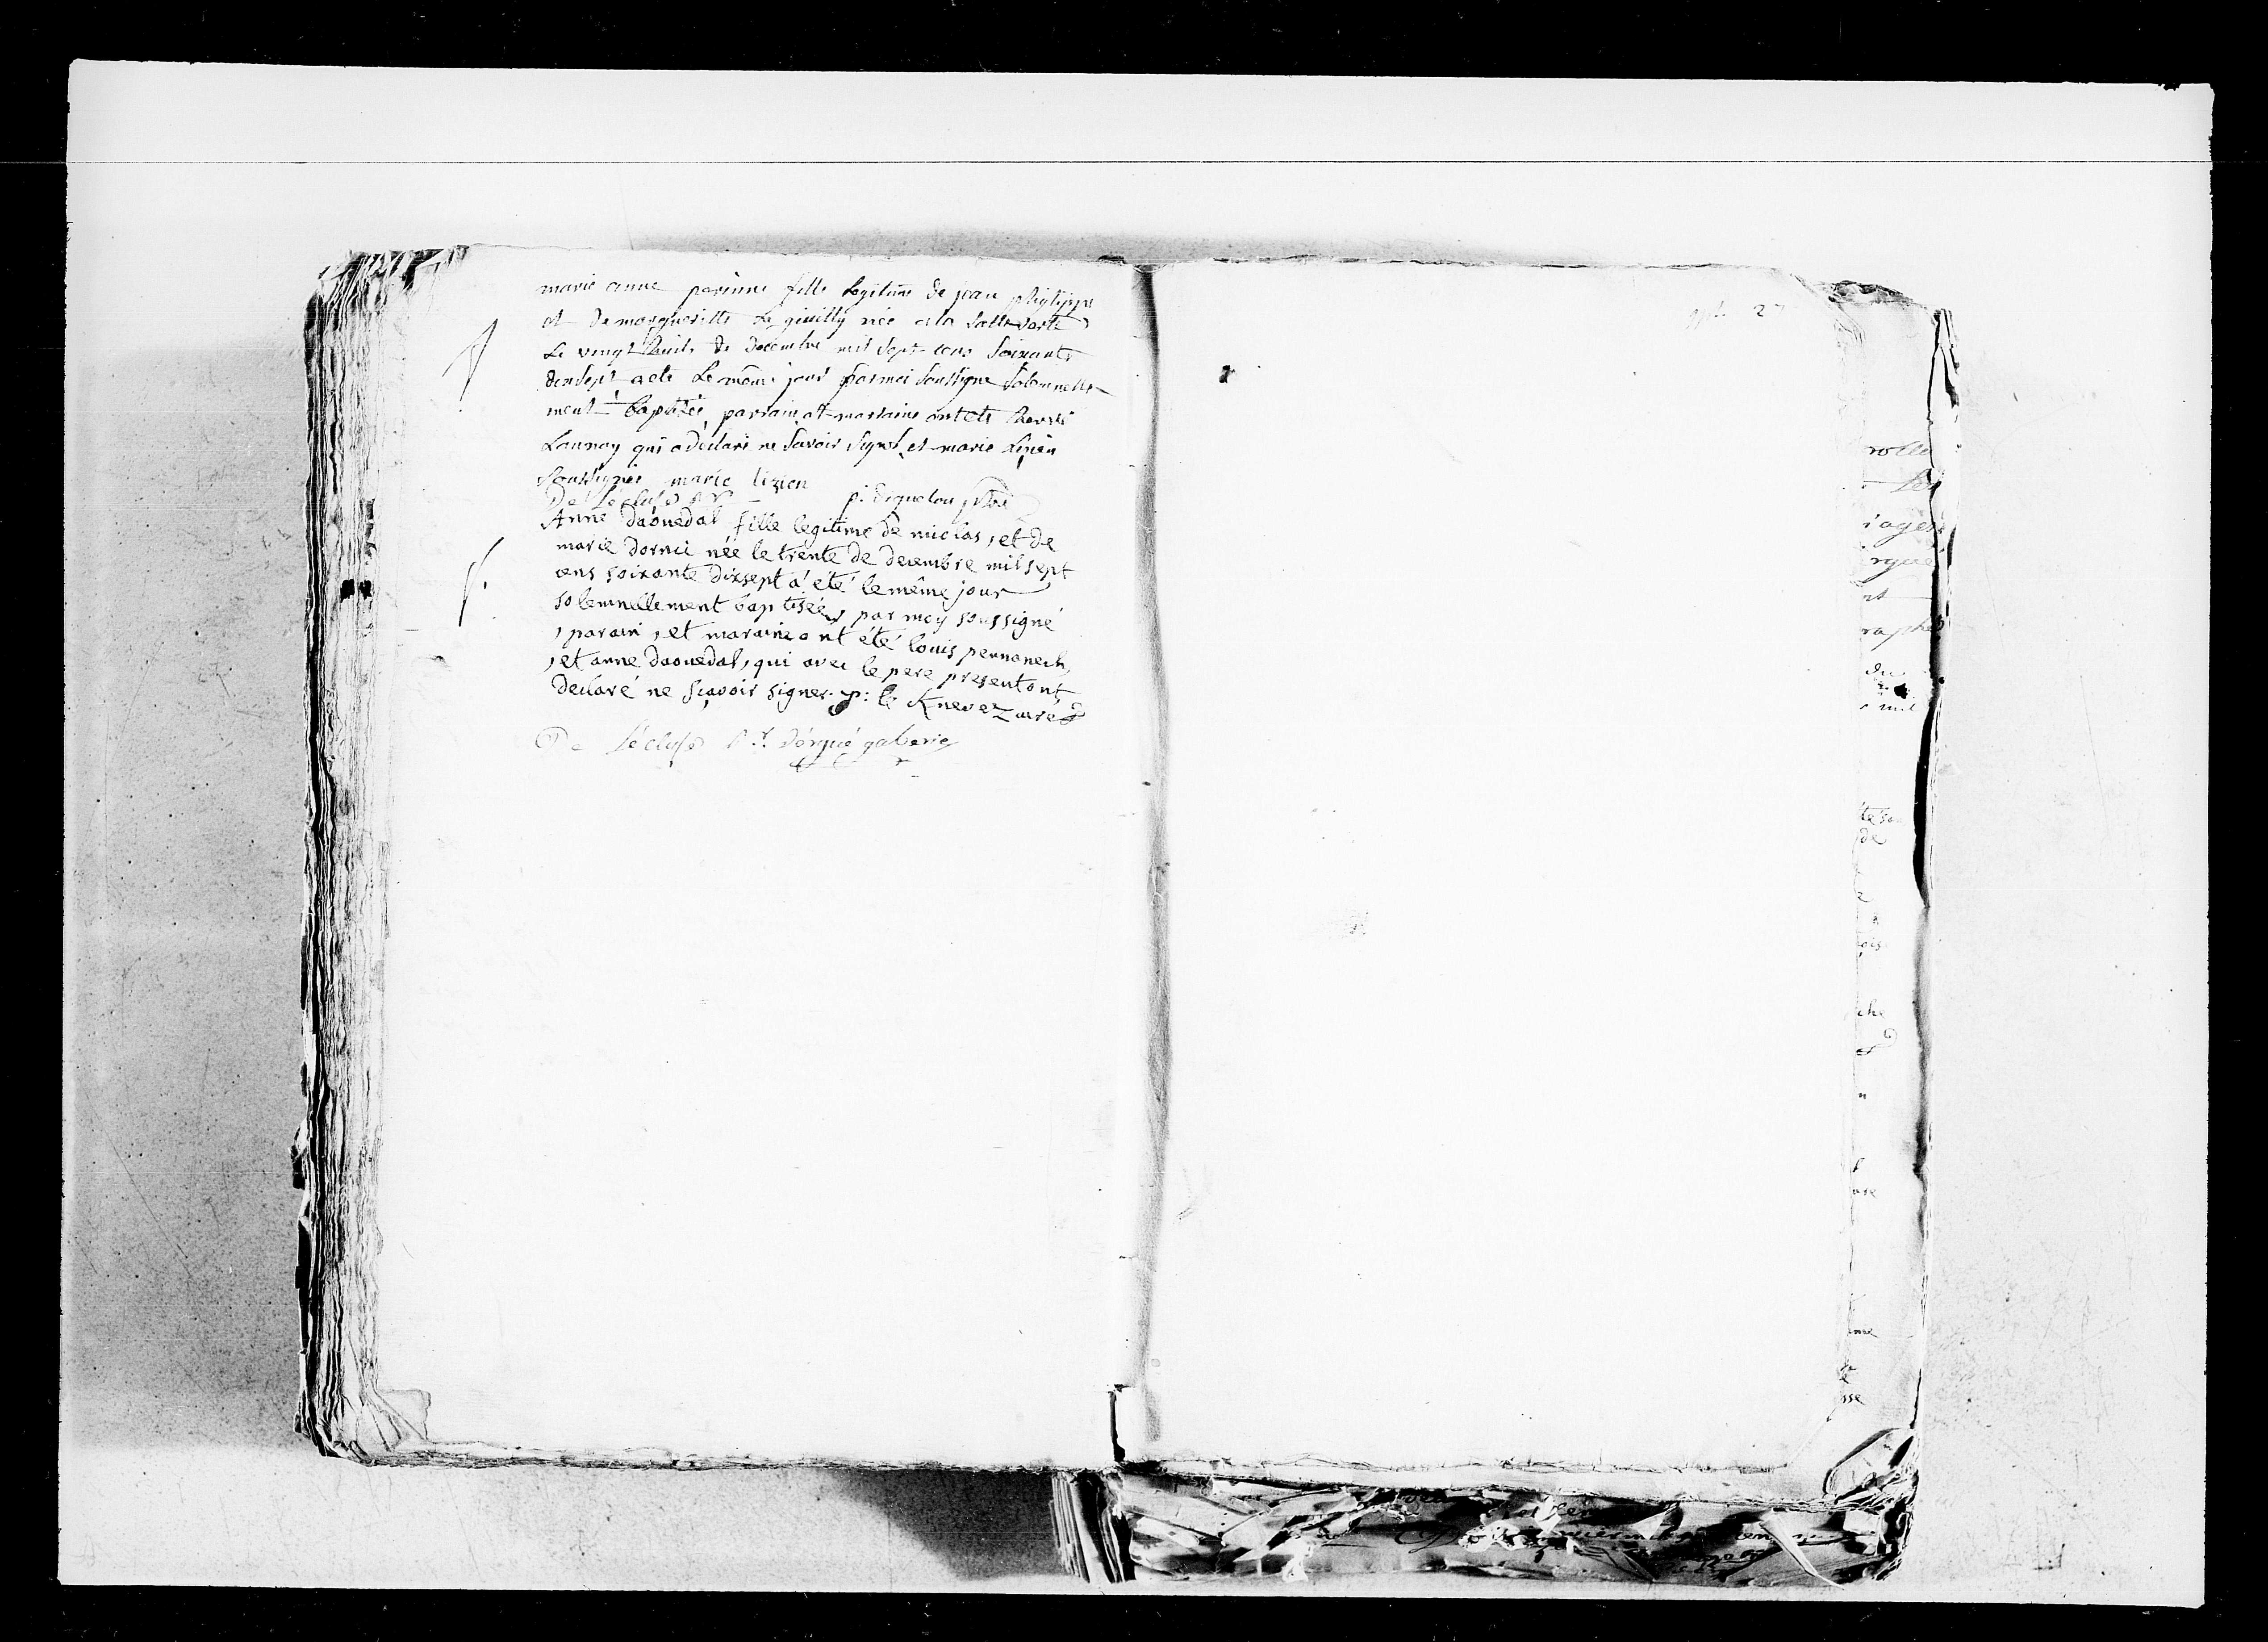 marie anne perinne fille legitime de jean phylippe
et de marguerite Le quilly née a la Salleverte
Le vingt huit de Decembre mil sept cens soixante
dixsept a eté Le même jour par moi soussigné solemnelle
ment baptisée, parrain et marraine ont eté hervé
Launay qui a declaré ne savoir signer, et marie Lizien
soussignée marie lizien
De Lécluse Rr p. diquelou ptre
Anne daouedal fille legitime de nicolas, et de
marie dornic née le trente de decembre mil sept
cens soixante dixsept a été le même jour
solemnellement baptisée, par moy soussigné
, parain, et maraine ont été louis pennanech,
, et anne daouedal, qui avec le pere present ont
declaré ne sçavoir signer. p: le Knevez curé
De Lécluse Rr. d'ergué gaberic
27
rolle
rgue
nt
raphe
du
mil
de
che